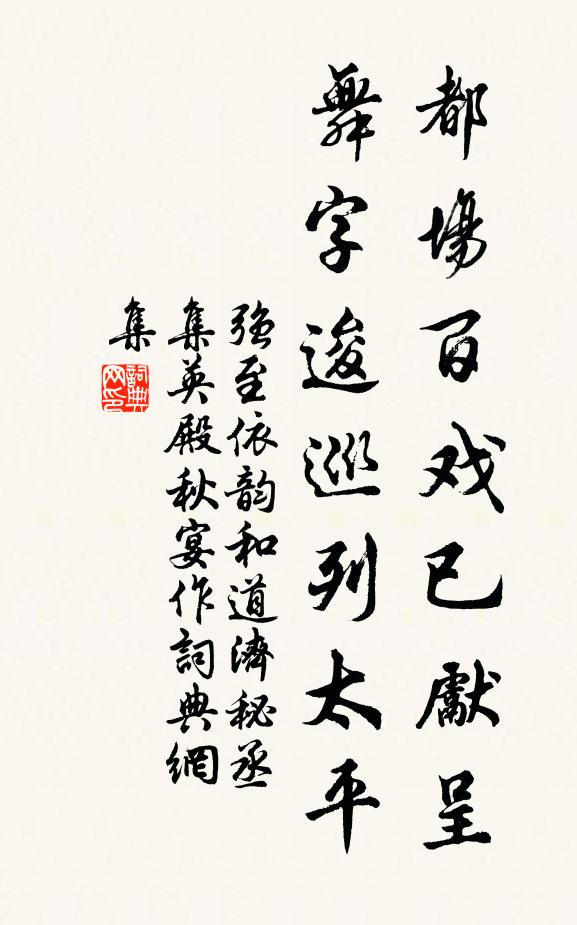 都場百戏已獻呈
舞字逡巡列太平
强至依韵和道濟秘丞
集英殿秋宴作詞典網
集
詞典网印